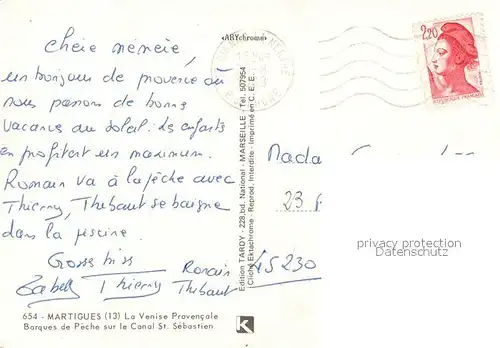 «ABYchrome»
2,20
REPUBLIQUE FRANÇAISE
Cheie mémeié,
un bonjour de provence où
nous passons de bonnes
vacances au soleil. Les enfants
en profitent un maximum.
Romain va à la pêche avec
Thierry, Thibaut se baigne
dans la piscine.
Gross biss
Romain
Isabelle Thierry Thibaut
Edition TARDY - 228, bd. National - MARSEILLE - Tél. 507954
Cliché Ektachrome - Reprod. Interdite - Imprimé en C.E.E.
Mada
23
45230
privacy protection
Datenschutz
654 - MARTIGUES (13) La Venise Provençale
Barques de Pêche sur le Canal St. Sébastien
K